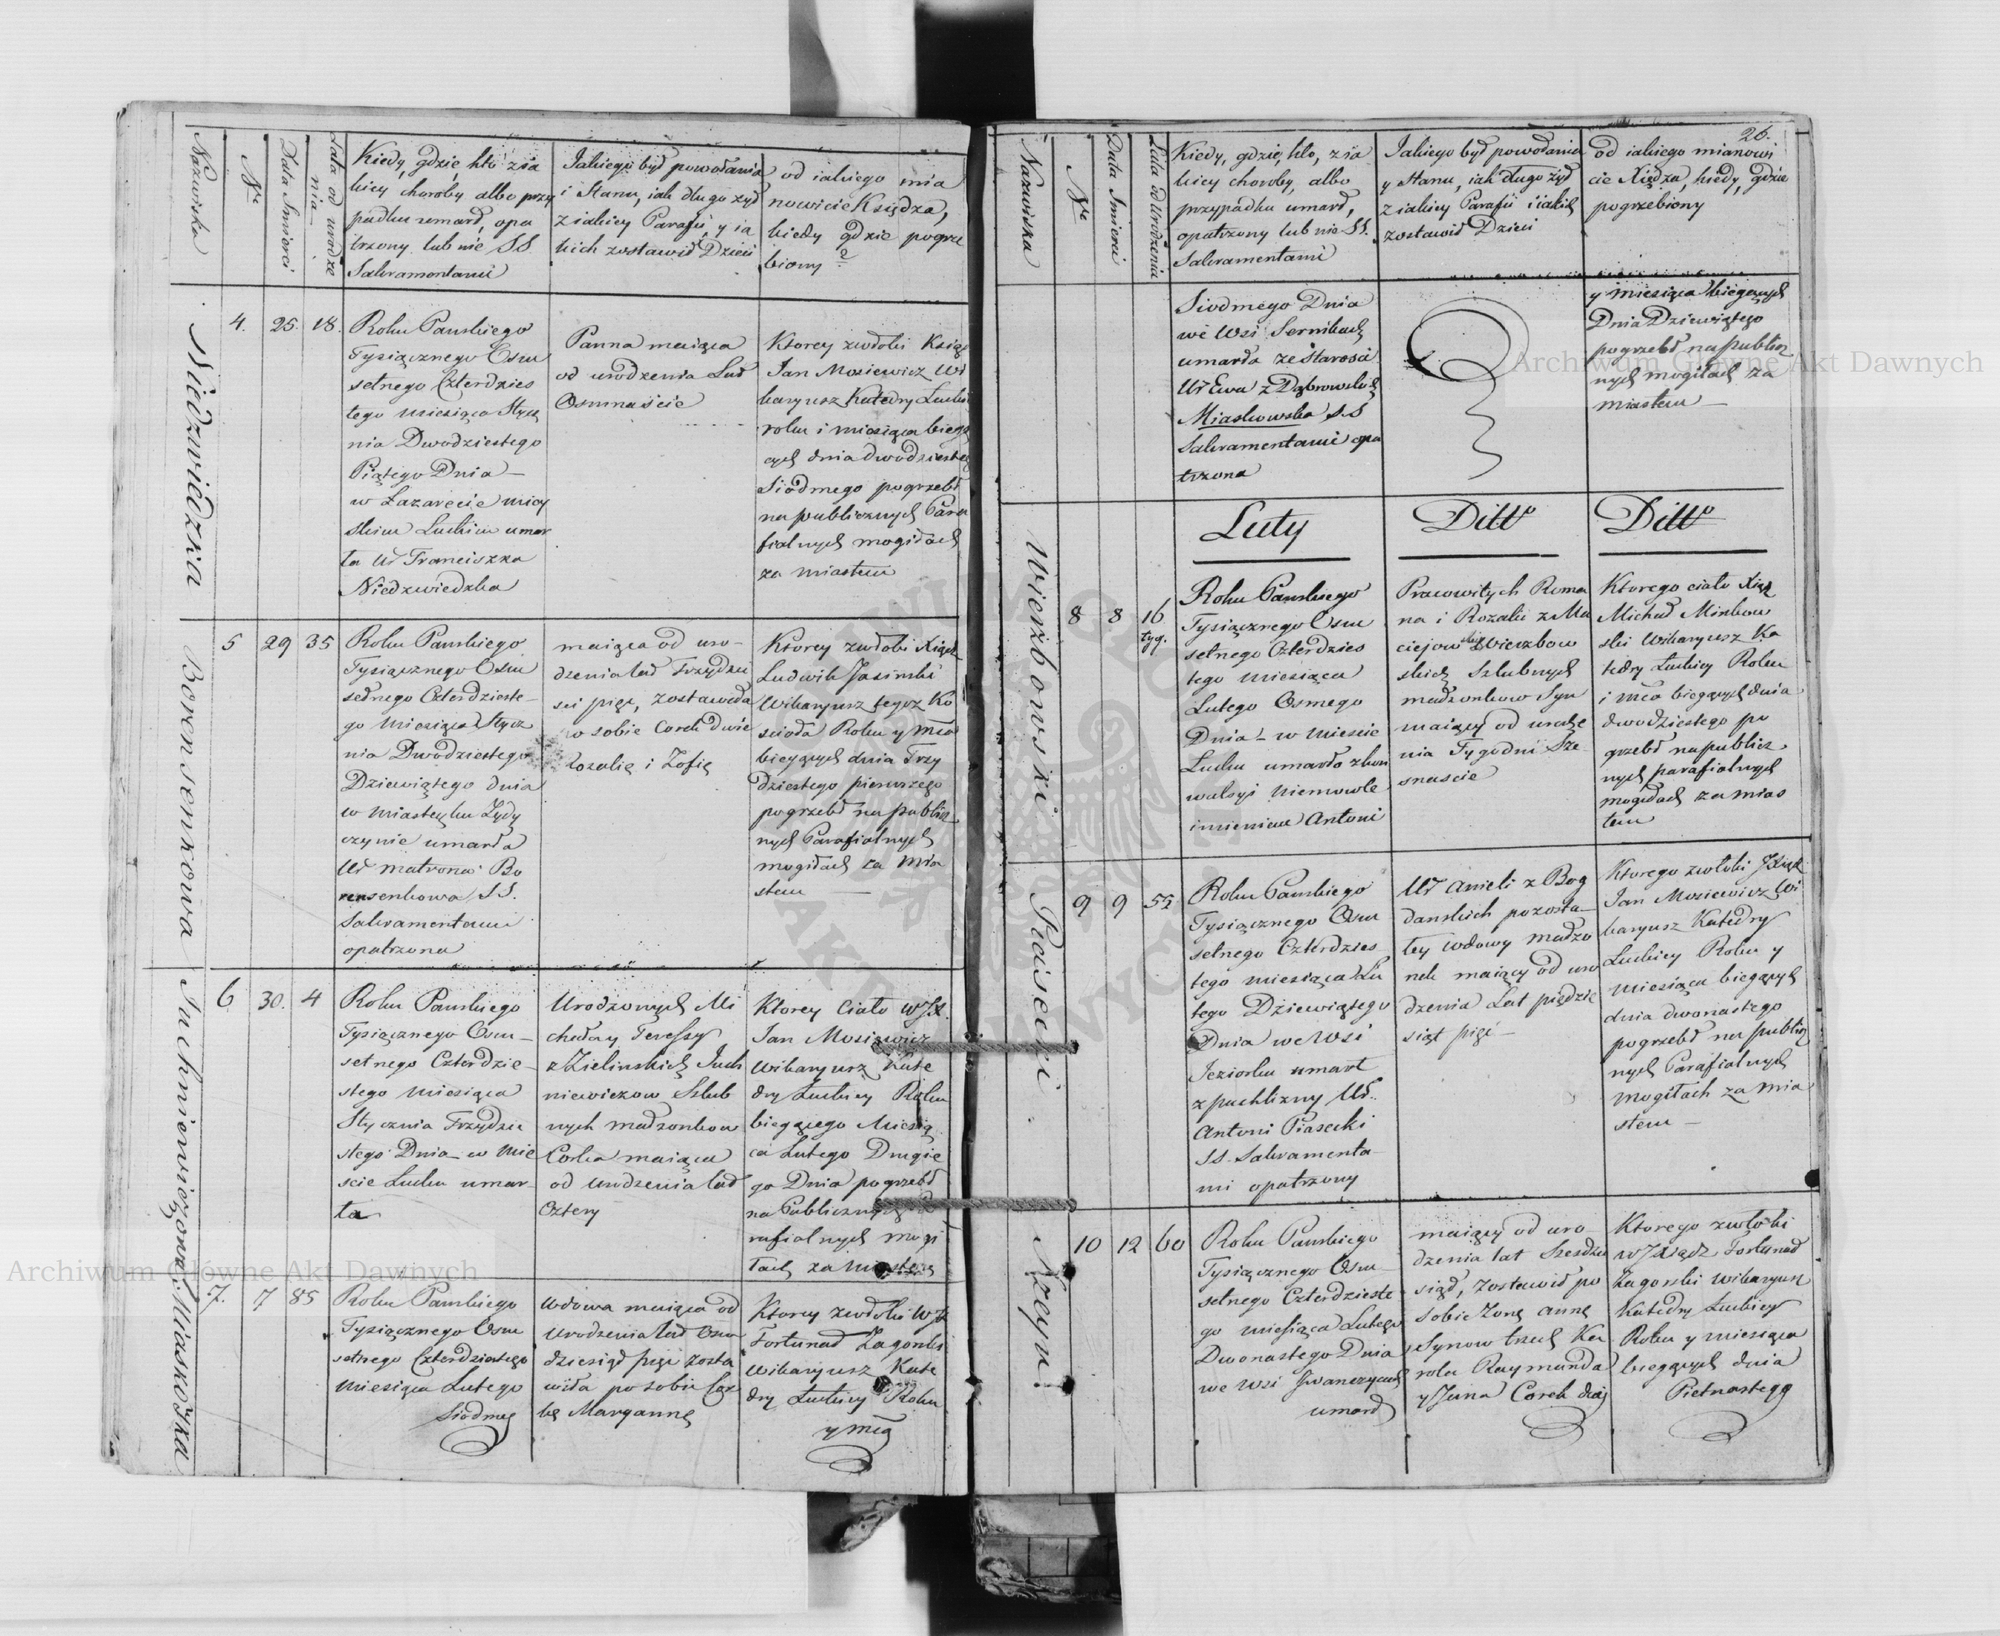 Nazwiska
Nr
Data Śmierci
Lata od urodze
nia
Kiedy, gdzie, kto z ja
kiey choroby albo przy
padku umarł, opa
trzony lub nie S.S.
Sakramentami
Jakiego był powołania
i Stanu, jak długo żył
z jakiey Parafii, y ja
kich zostawił Dzieci
od jakiego mia
nowicie Księdza,
kiedy gdzie pogrze
biony
Niedzwiedzka
4.
25.
18.
Roku Panskiego
Tysiącznego Osm
setnego Czterdzies
tego miesiąca Stycz
nia Dwódziestego
Piątego Dnia
w Łazarecie miey
skim Luckim umar
ła Ur Franciszka
Niedzwiedzka
Panna maiąca
od urodzenia Lat
Osmnaście
Ktorey zwłoki Ksiąz
Jan Mosiewicz Wi
karyusz Katedry Lucki
roku i miesiąca bieżą
cych dnia dwódziestego
Siódmego pogrzebł
na publicznych Para
fialnych mogiłach
za miastem
Borensenkowa
5
29
35
Roku Panskiego
Tysiącznego Osm
setnego Czterdzieste-
go miesiąca Stycz
nia Dwódziestego
Dziewiątego dnia
w miasteczku Żydy
czynie umarła
Ur matrona Bo
rensenkowa S.S.
Sakramentami
opatrzona
maiąca od uro-
dzenia lat Trzydzie
sci pięc, zostawiła
w sobie Corek dwie
Rozalię i Zofię
Ktorey zwłoki Xiądz
Ludwik Jasinski
Wikaryusz tegoz Ko
scioła Roku y mca
bieżących dnia Trzy
dziestego pierwszego
pogrzebł na publicz
nych Parafialnych
mogiłach za mia
stem
Juchniewiczowa
6
30.
4
Roku Panskiego
Tysiącznego Osm-
setnego Czterdzie-
stego miesiąca
Stycznia Trzydzie
stego Dnia w mie
scie Lucku umar-
ła
Urodzonych Mi
chała y Teressy
z Zielinskich Juch
niewiczow Szlub
nych małżonkow
Corka maiąca
od urodzenia lat
Cztery
Ktorey Ciało WJX.
Jan Mosiewicz
Wikaryusz Kate
dry Luckiey Roku
bieżącego Miesią
ca Lutego Drugie
go Dnia pogrzebł
na Publicznych Pa
rafialnych mogi
łach za miastem
Miaskowska
7.
7
85
Roku Panskiego
Tysiącznego Osm
setnego Czterdziestego
miesiąca Lutego
Siódmeg
Wdowa maiąca od
urodzenia lat Osm
dziesiąt pięc zosta
wiła po sobie Cor
kę Maryannę
Ktorey zwłoki WJX
Fortunat Zagorski
Wikaryusz Kate
dry Luckiey Roku
y mca
26.
Nazwiska
Nr
Data Śmierci
Lata od Urodzenia
Kiedy, gdzie, kto, z ja
kiey choroby, albo
przypadku umarł,
opatrzony lub nie SS.
Sakramentami
Jakiego był powołania
y Stanu, jak długo żył
z jakiey Parafii i jakich
zostawił Dzieci
od jakiego mianowi
cie Xiędza, kiedy, gdzie
pogrzebiony
Siodmego Dnia
we Wsi Sernikach
umarła ze starosci
Ur Ewa z Dąbrowskich
Miaskowska S.S
Sakramentami opa
trzona
y miesiąca bieżących
Dnia Dziewiątego
pogrzebł na publicz
nych mogiłach za
miastem
Luty
Ditto
Ditto
Wierzbowski
8
8
16
tyg.
Roku Panskiego
Tysiącznego Osm
setnego Czterdzies
tego miesiąca
Lutego Osmego
Dnia w miescie
Lucku umarło z kon
wulsyi niemowle
imieniem Antoni
Pracowitych Roma
na i Rozalii z Ma
ciejow Wierzbow
skich Szlubnych
małżonkow Syn
maiący od urodze
nia Tygodni Sze-
snascie
Ktorego ciało Xiądz
Michał Minkow
ski Wikaryusz Ka
tedry Luckiey Roku
i mca bieżących dnia
dwódziestego po
grzebł na publicz
nych parafialnych
mogiłach za mias
tem
Piasecki
9
9
55
Roku Panskiego
Tysiącznego Osm
setnego Czterdzies
tego miesiąca Lu
tego Dziewiątego
Dnia we Wsi
Jeziorku umarł
z puchlizny Ur.
Antoni Piasecki
SS. Sakramenta-
mi opatrzony
Ur Anieli z Bog
danskich pozosta-
łey wdowy małżo
nek maiący od uro
dzenia Lat pięćdzie
siąt pięć
Ktorego zwłoki Xiądz
Jan Mosiewicz Wi
karyusz Katedry
Luckiey Roku y
miesiąca bieżących
dnia dwónastego
pogrzebł na publicz
nych Parafialnych
mogiłach za mia
stem
10
12
60
Roku Panskiego
Tysiącznego Osm-
setnego Czterdzieste
go miesiąca Lutego
Dwónastego Dnia
we Wsi Iwanczycach
umarł
maiący od uro
dzenia lat Szesdzie
siąt, zostawił po
sobie Żonę Annę
Synow trzech Ka
rola Raymunda
y Jana Corek dwie
Ktorego zwłoki
WJXiądz Fortunat
Zagorski Wikaryusz
Katedry Luckiey
Roku y miesiąca
bieżących dnia
Pietnastego
Archiwum Główne Akt Dawnych
Archiwum Główne Akt Dawnych